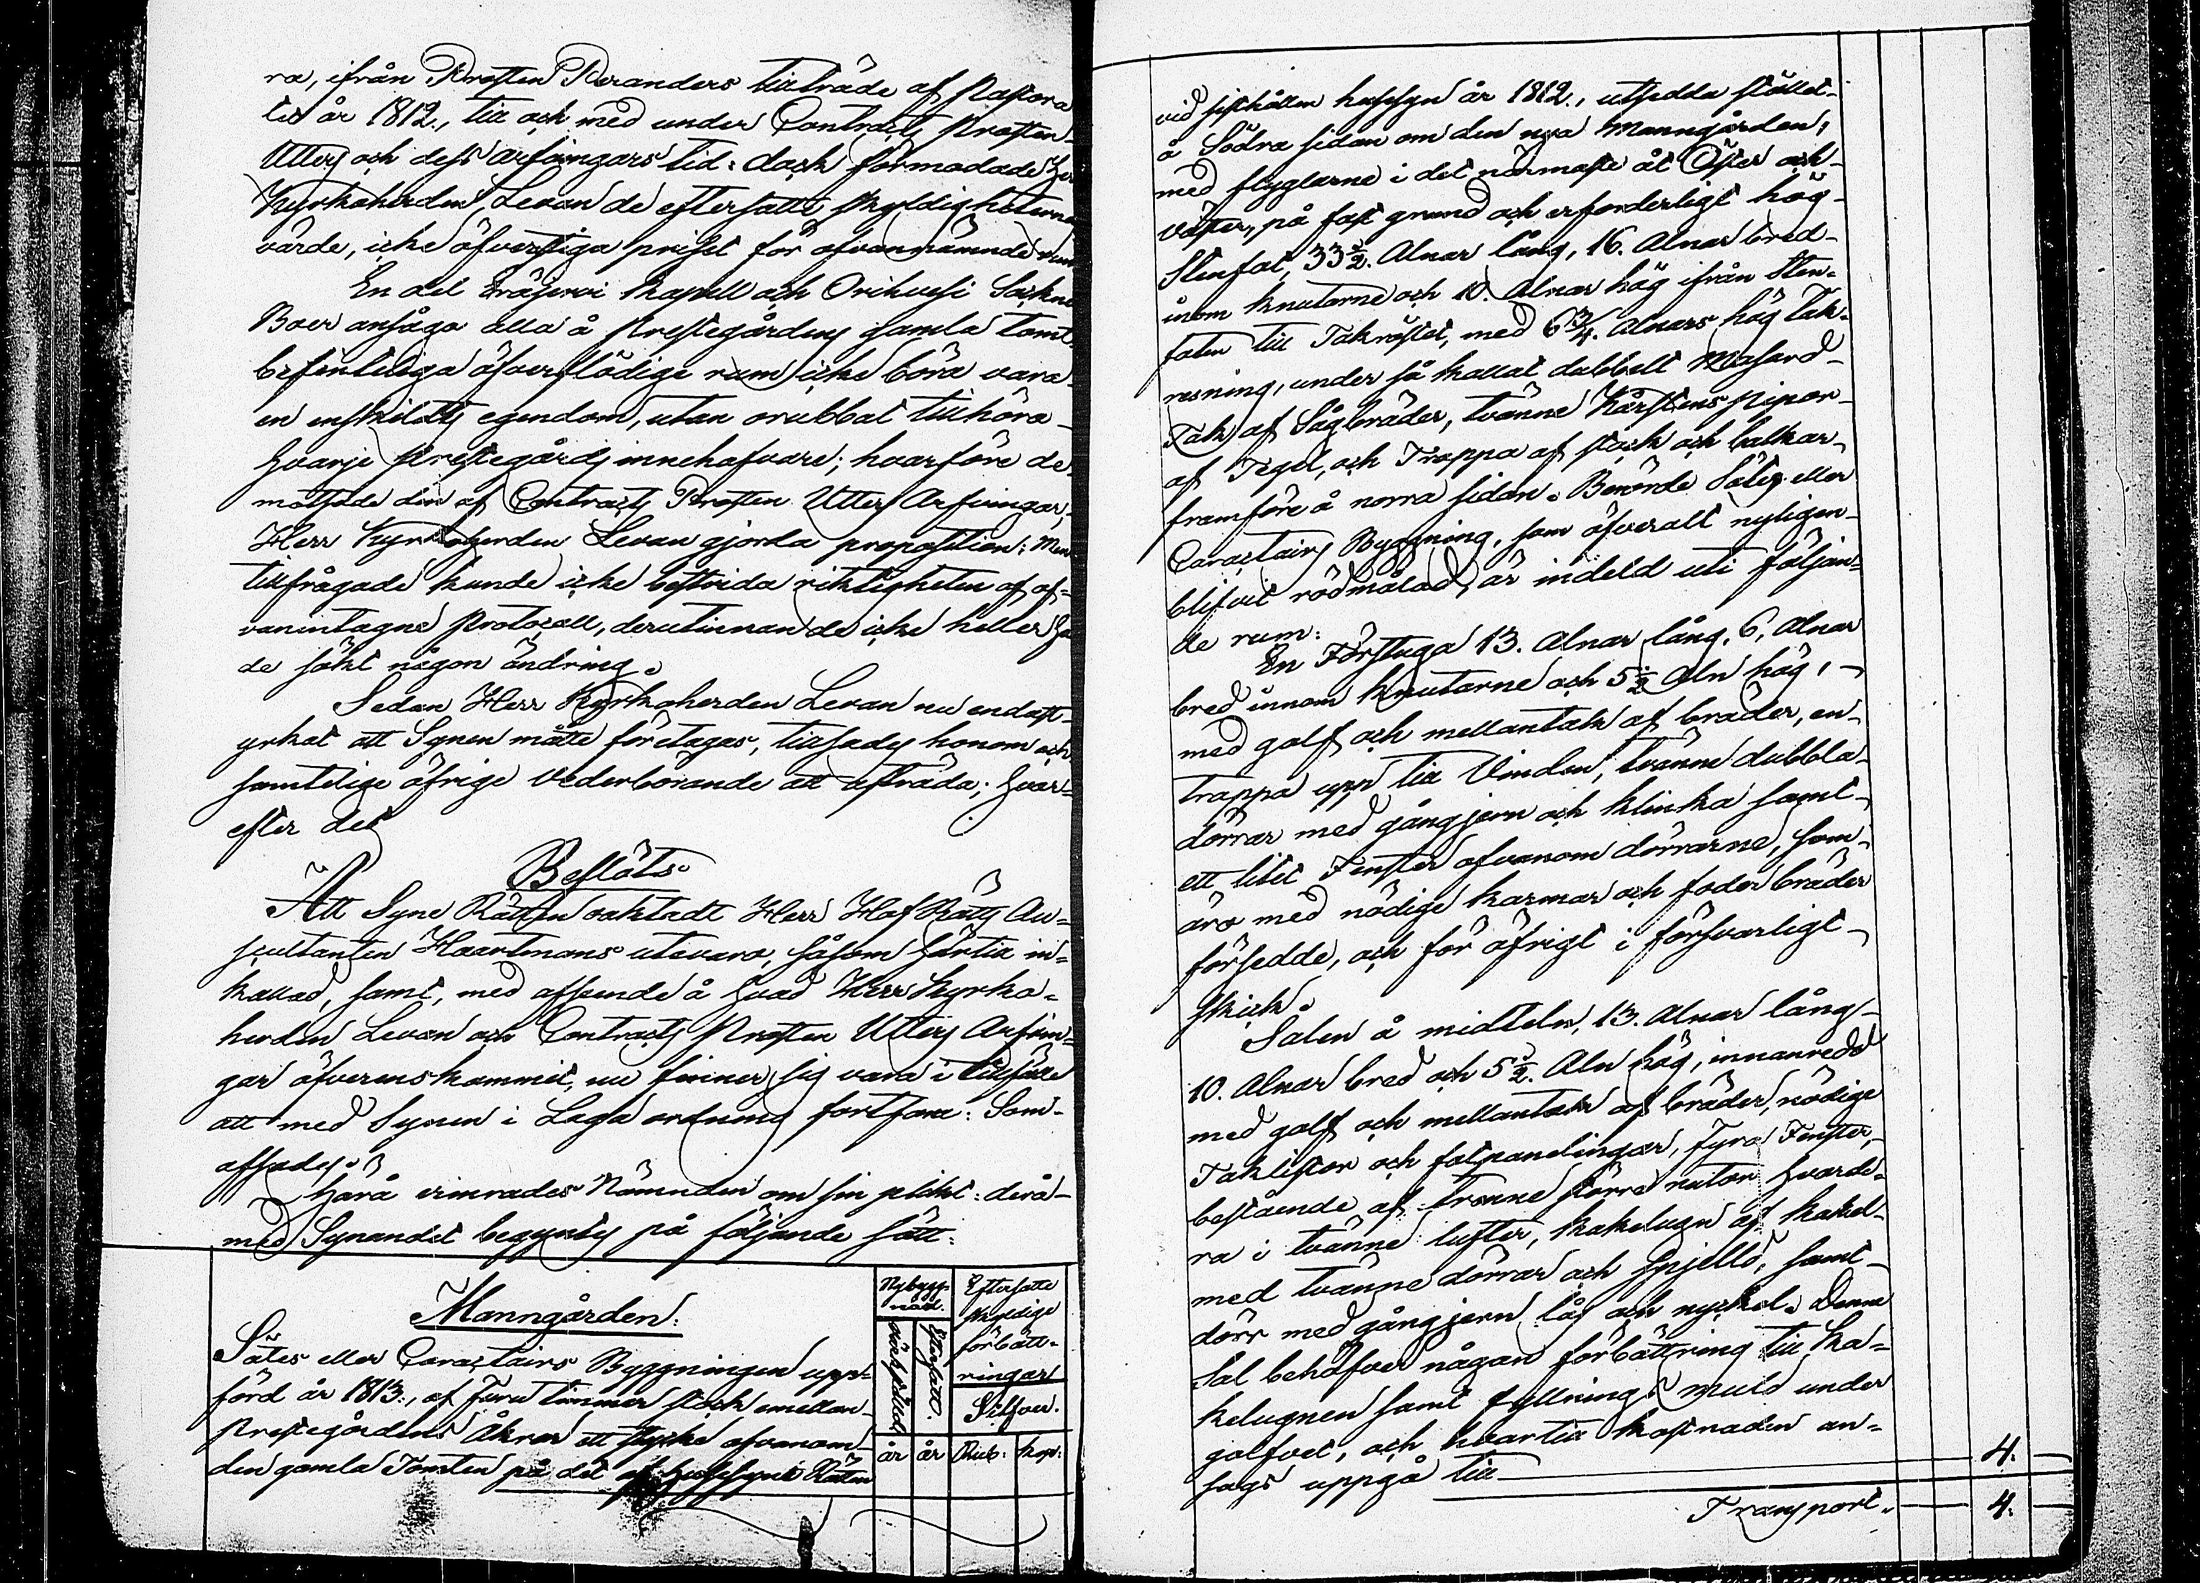 ra, ifrån Prosten Peranders tillträde af Pastora
tet år 1812., till och med under Contracts Prosten
Utters och dess arfvingars tid: dock förmodade Herr
Kyrkoherden Levan de eftersatte skyldigheternas
värde, icke öfverstiga priset för ofvannämnde rum
En del Eräjervi Kapell och Orihvesi Sockne
Boer ansågo alla å Prestegårdens gamla tomt
befinteliga öfverflödige rum icke böra vara
en enskilds egendom, utan orubbat tillhöra
hvarje Prestegårds innehafvare; hvarföre de
motsade den af Contracts Prosten Utters Arfvingar,
Herr Kyrkoherden Levan gjorda proposition: Men
tillfrågade kunde icke bestrida riktigheten af of-
vanintagne Protocoll, derutinnan de icke heller ha
de sökt någon ändring.
Sedan Herr Kyrkoherden Levan nu endast
yrkat att Synen måtte företagas, tillsades honom och
samtelige öfrige Vederbörande att afträda; hvar-
efter det
Beslöts
Att Syne Rätten oaktadt Herr Hof Rätts Au-
scultanten Haartmans utevaro, såsom härtill in-
kallad, samt, med afseende å hvad Herr Kyrko-
herden Levan och Contracts Prosten Utters Arfvin-
gar öfverenskommit, nu finner sig vara i tillfälle
att med Synen i Laga ordning fortfara: Som
afsades.
Härå erinrades Nämnden om sin plikt: derå
med Synandet begyntes på följande sätt:
Manngården:
Nybygg-
nad.
Eftersatte
skyldige
förbätt-
ringar
Silfver.
Eftersatt.
år år Rub: Kop:
Sätes eller Caractairs Byggningen upp-
förd år 1813., af Furu timmer stock emellan
Prestegårdens Åkrar ett stycke ofvanom
den gamla Tomten på det af Husesyns Rätten
vid sisthållen husesyn år 1812., utsedda stället
å Södra sidan om den nya Manngården,
med flyglarne i det närmaste åt Öster och
väster, på fast grund och erforderligt hög
Stenfot, 33½. Alnar lång, 16. Alnar bred
inom knutarne och 10. Alnar hög ifrån sten-
foten till Takröstet, med 6¾. Alnars hög tak-
resning, under så kallat dubbelt Masard
Tak af Sågbräder, tvänne Kårstens pipor
af Tegel, och Trappa af stock och balkar
framföre å norra sidan. Berörde Sätes eller
Caractairs Byggning, som öfveralt nyligen
blifvit rödmålad, är indeld uti följan-
de rum:
En Förstuga 13. Alnar lång, 6, Alnar
bred innom knutarne och 5½ Aln hög,
med golf och mellantak af bräder, en
trappa upp till Vinden, tvänne dubbla
dörrar med gångjern och klinka samt
ett litet Fenster ofvanom dörrarne, som
äro med nödige karmar och foder bräder
försedde, och för öfrigt i försvarligt
skick.
Salen å midteln, 13. Alnar lång
10. Alnar bred och 5½. Aln hög, innanredd
med golf och mellantak af bräder, nödige
Taklistor och fotpanelingar, fyra Fenster,
bestående af trenne större rutor hvarde-
ra i tvänne lufter, kakelugn af kakel
med tvänne dörrar och spjelld, samt
dörr med gångjern lås och nyckel. Denna
Sal behöfver någon förbättring till ka-
kelugnen samt fyllnings muld under
golfvet, och hvartill kostnaden an-
sågs uppgå till 4. —
Transport. 4. —